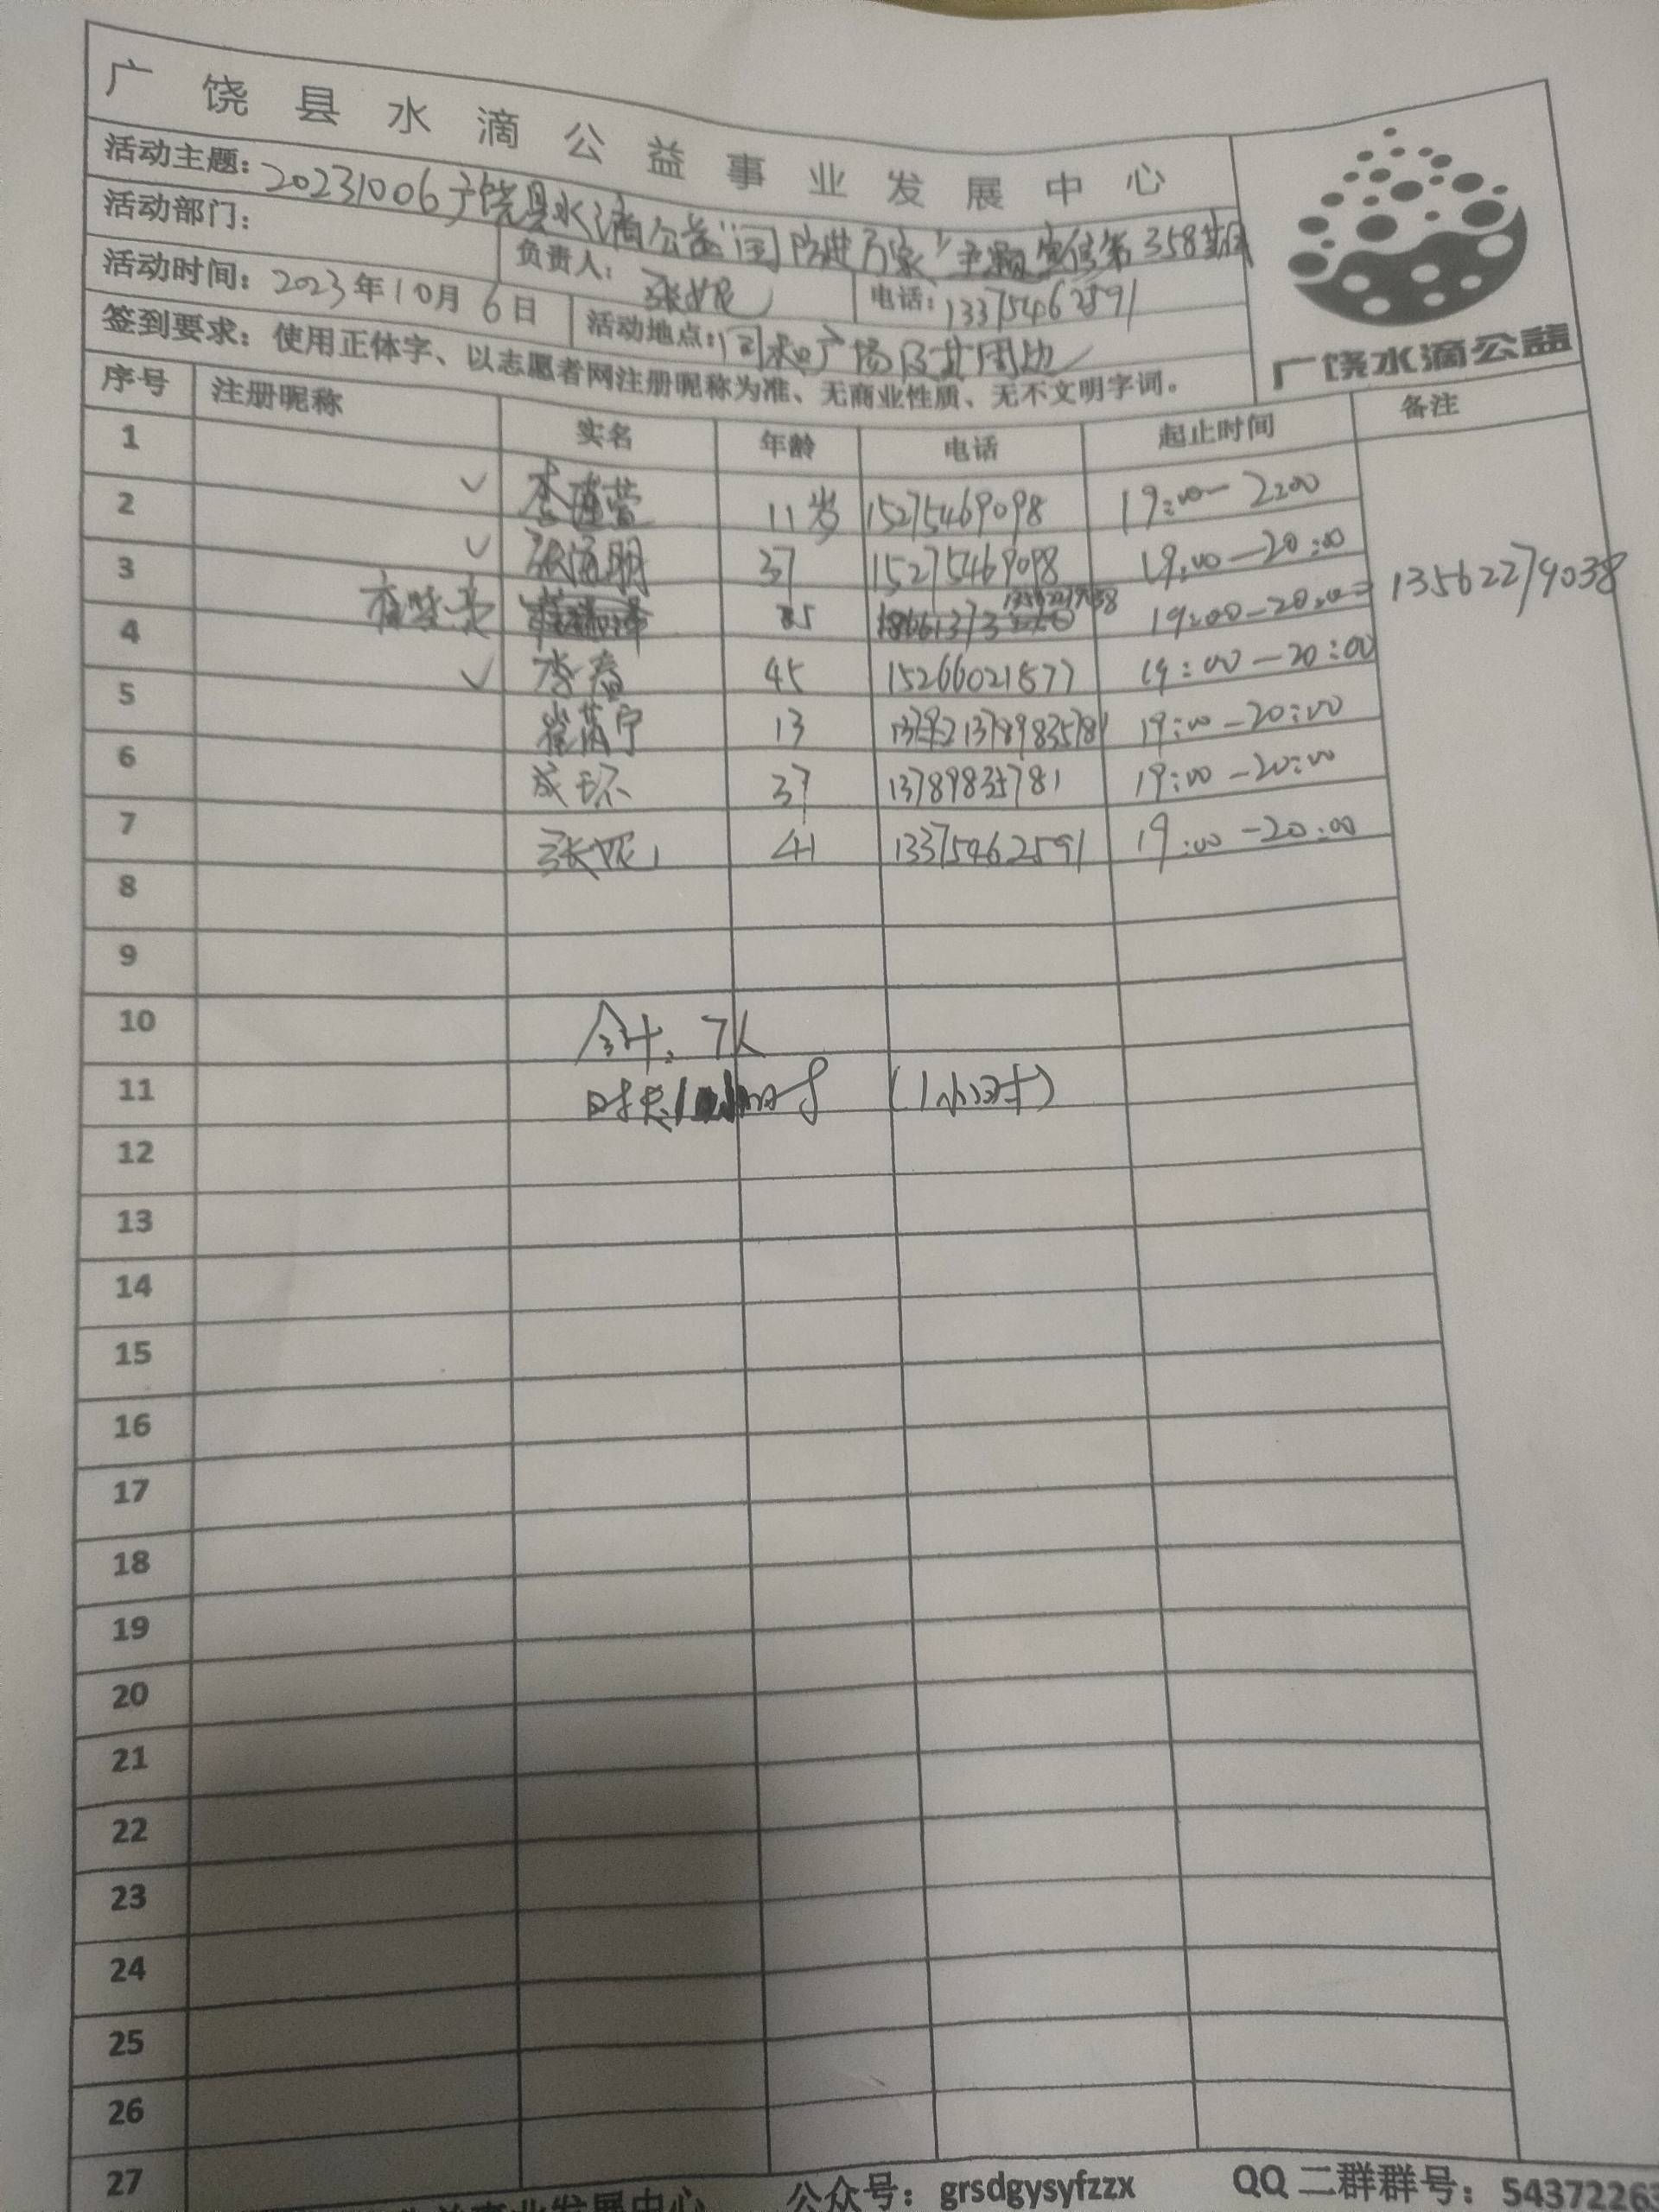 广饶县水滴公益事业发展中心
活动主题：20231006广饶县水滴公益"国防进万家"主题宣传第358期
活动部门： 负责人：张妮 电话：13375462591
活动时间：2023年10月6日 活动地点：广场及其周边
签到要求：使用正体字、以志愿者网注册昵称为准、无商业性质、无不文明字词。
广饶水滴公益
序号 注册昵称 实名 年龄 电话 起止时间 备注
1 ✓ 李瑾萱 11岁 15275469098 19:00-20:00
2 ✓ 张海明 37 15275469098 19:00-20:00
3 19:00-20:00 13562279038
4 ✓ 李春 45 15266021577 19:00-20:00
5 崔茵宁 13 13789835781 19:00-20:00
6 成环 37 13789835781 19:00-20:00
7 张妮 41 13375462591 19:00-20:00
8
9
10 合计：7人
11 时长：小时 (1小时)
12
13
14
15
16
17
18
19
20
21
22
23
24
25
26
27
公益事业发展中心 公众号：grsdgysyfzzx QQ二群群号：54372263